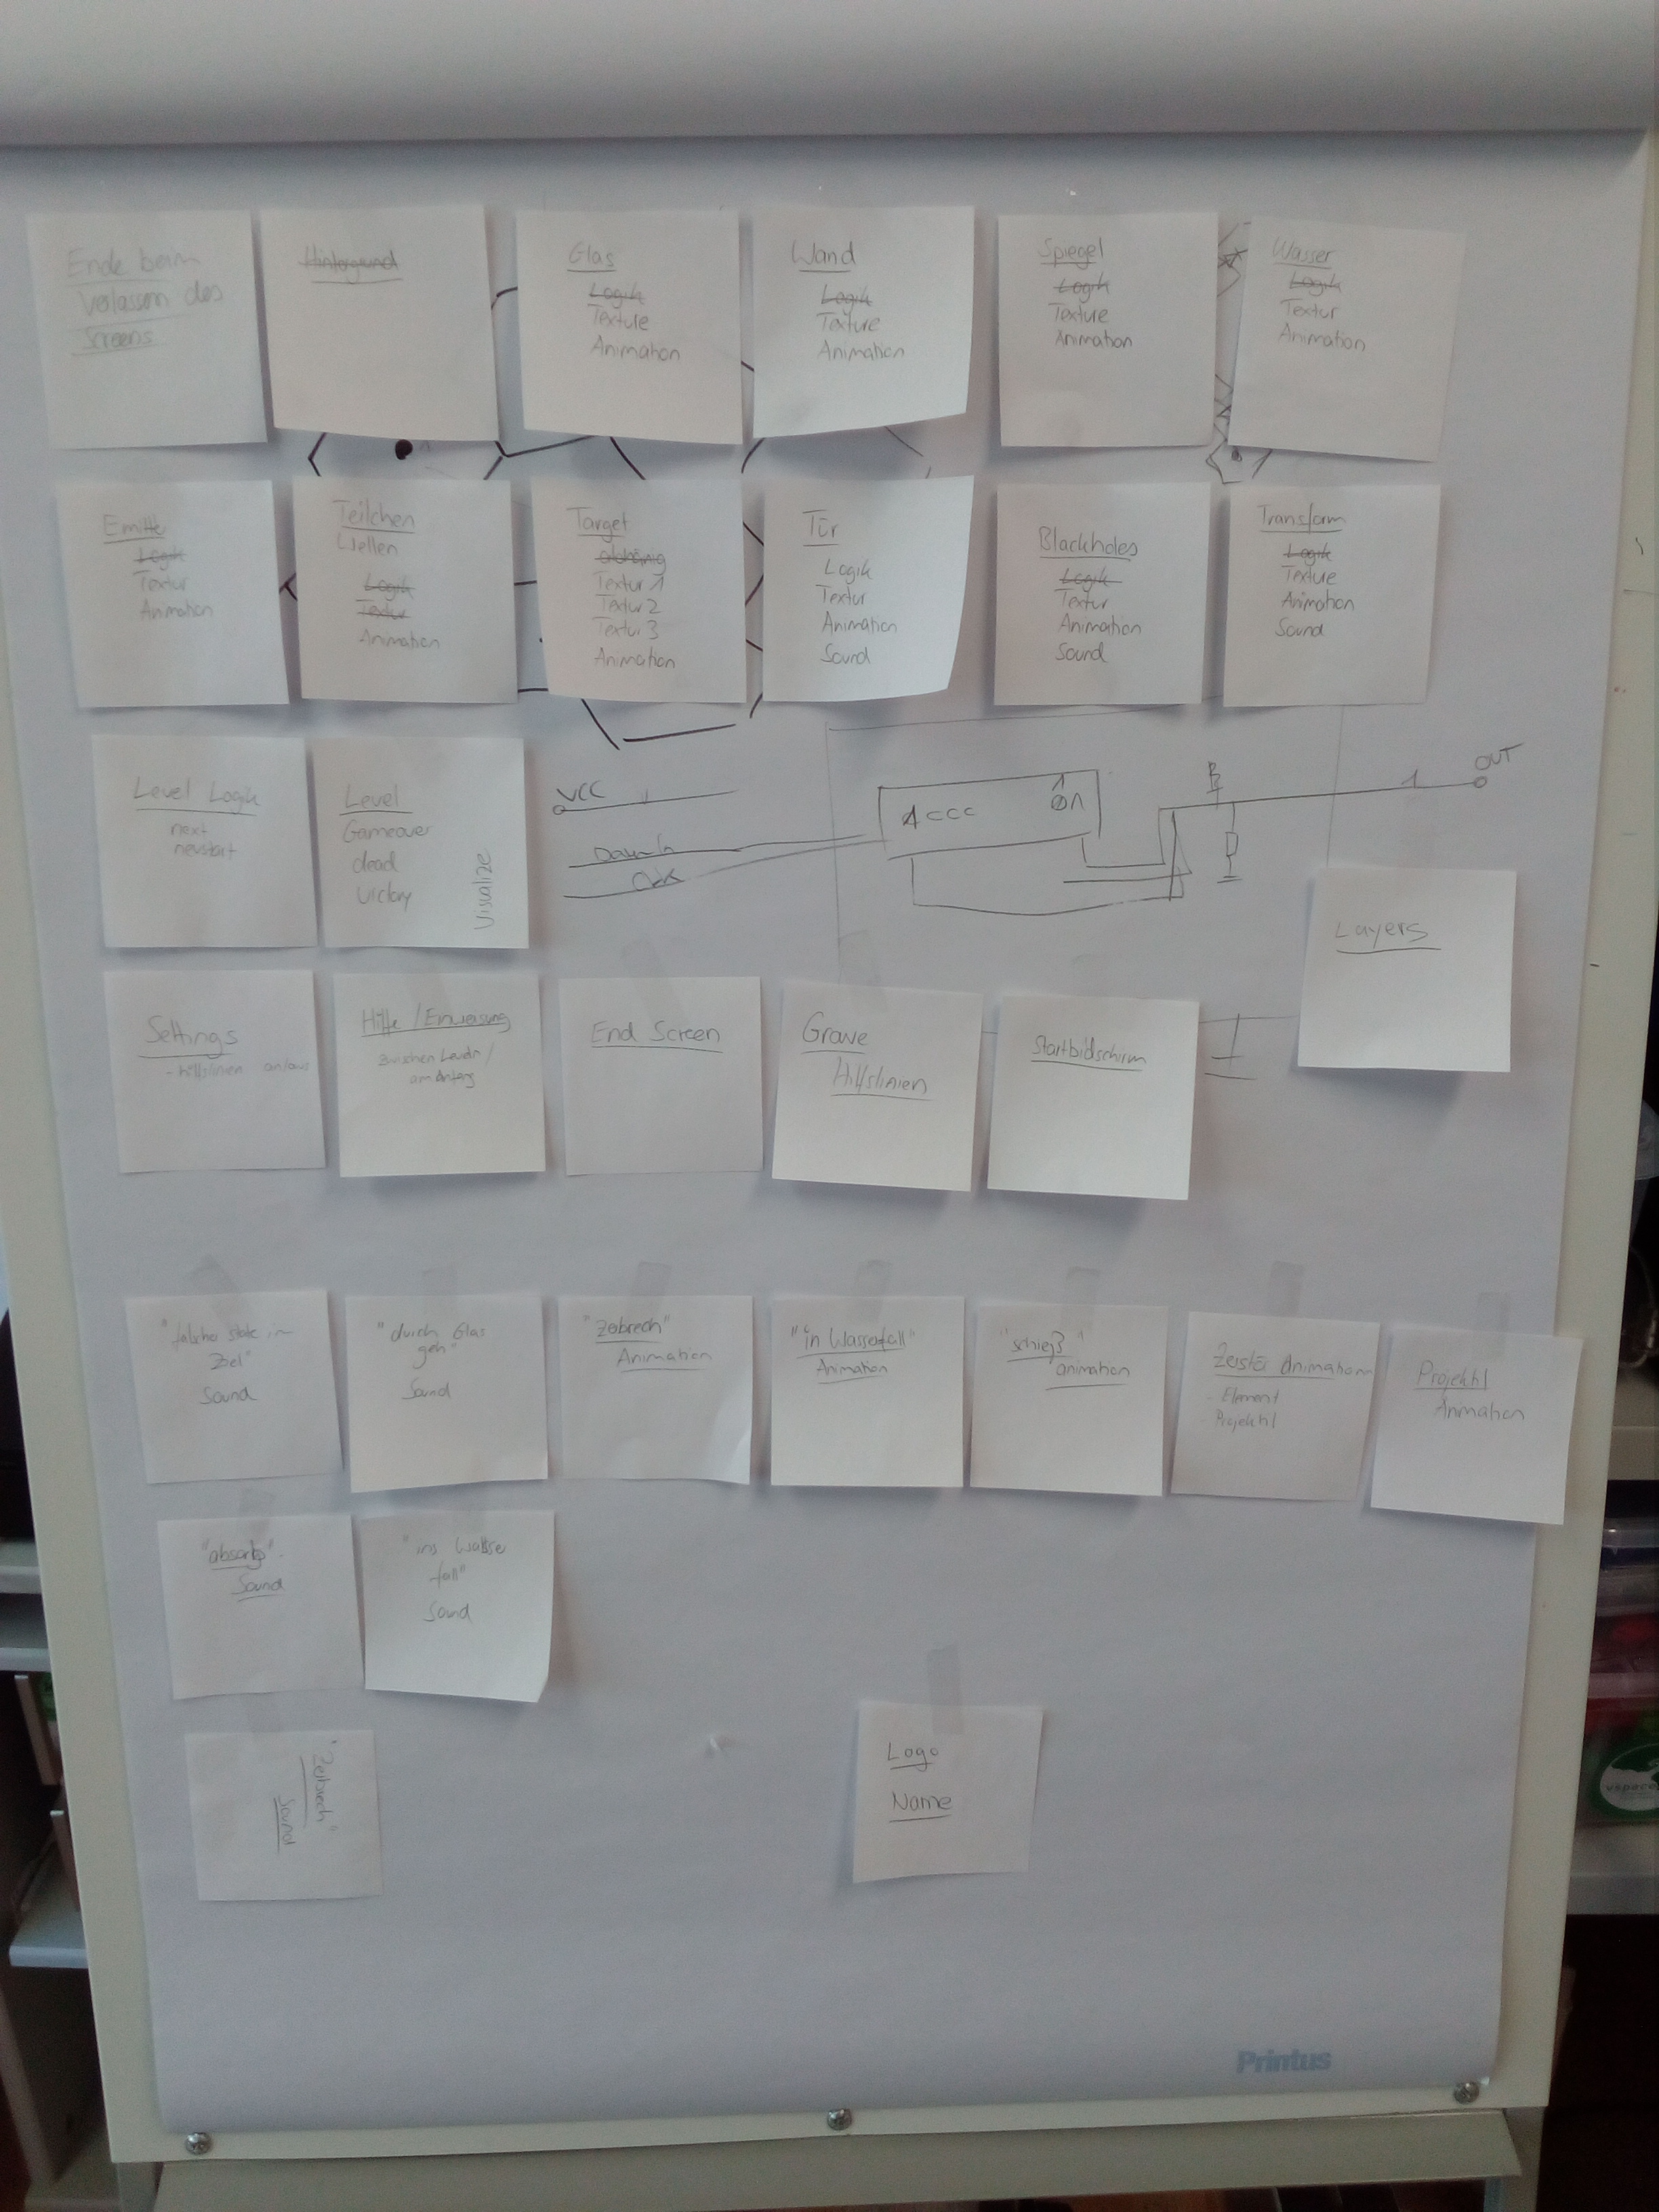 Ende beim
Verlassen des
Screens
Hintergrund
Glas
Logik
Texture
Animation
Wand
Logik
Texture
Animation
Spiegel
Logik
Texture
Animation
Wasser
Logik
Textur
Animation
Emitte
Logik
Textur
Animation
Teilchen
Wellen
Logik
Textur
Animation
Target
Textur 1
Textur 2
Textur 3
Animation
Tür
Logik
Textur
Animation
Sound
Blackholes
Logik
Textur
Animation
Sound
Transform
Logik
Texture
Animation
Sound
Level Logik
next
neustart
Level
Gameover
dead
victory
Visualize
VCC
OUT
1
Layers
Settings
- hilfslinien an/aus
Hilfe / Einweisung
zwischen Leveln /
am Anfang
End Screen
Grave
Hilfslinien
Startbidschirm
"falscher state in
Ziel"
Sound
"durch Glas
geh"
Sound
"Zebrech"
Animation
"in Wasserfall"
Animation
"schieß"
animation
Zerstör Animation
- Element
- Projektil
Projektil
Animation
"absorb"
Sound
"ins Wasse
fall"
Sound
"Zerbrech"
Sound
Logo
Name
Printus
vspace